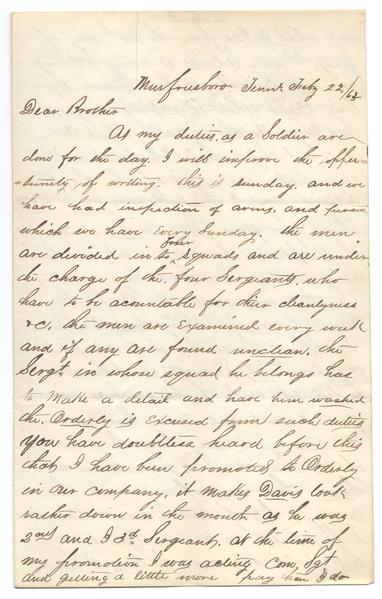 Murfreesboro Tenn. Feby 22/63
Dear Brother
As my duties, as a Soldier are
done for the day. I will improve the oppor-
-tunity of writing. this is sunday. and we
have had inspection of arms, and person
which we have every Sunday. the men
are divided in to Four squads and are under
the charge of the four Sergeants, who
have to be acountable for their cleanlyness
&c. the men are Examined every week
and if any are found unclean. the
Sergt. in whose squad he belongs has
to make a detail and have him washed
the Orderly is Excused from such duties
you have doubtless heard before this
that I have been promoted to Orderly
in our company. it makes Davis look
rather down in the mouth as he was
2nd and I 3d. Sergeant. at the time of
my promotion I was acting Com. Sgt
and getting a little more pay than I do